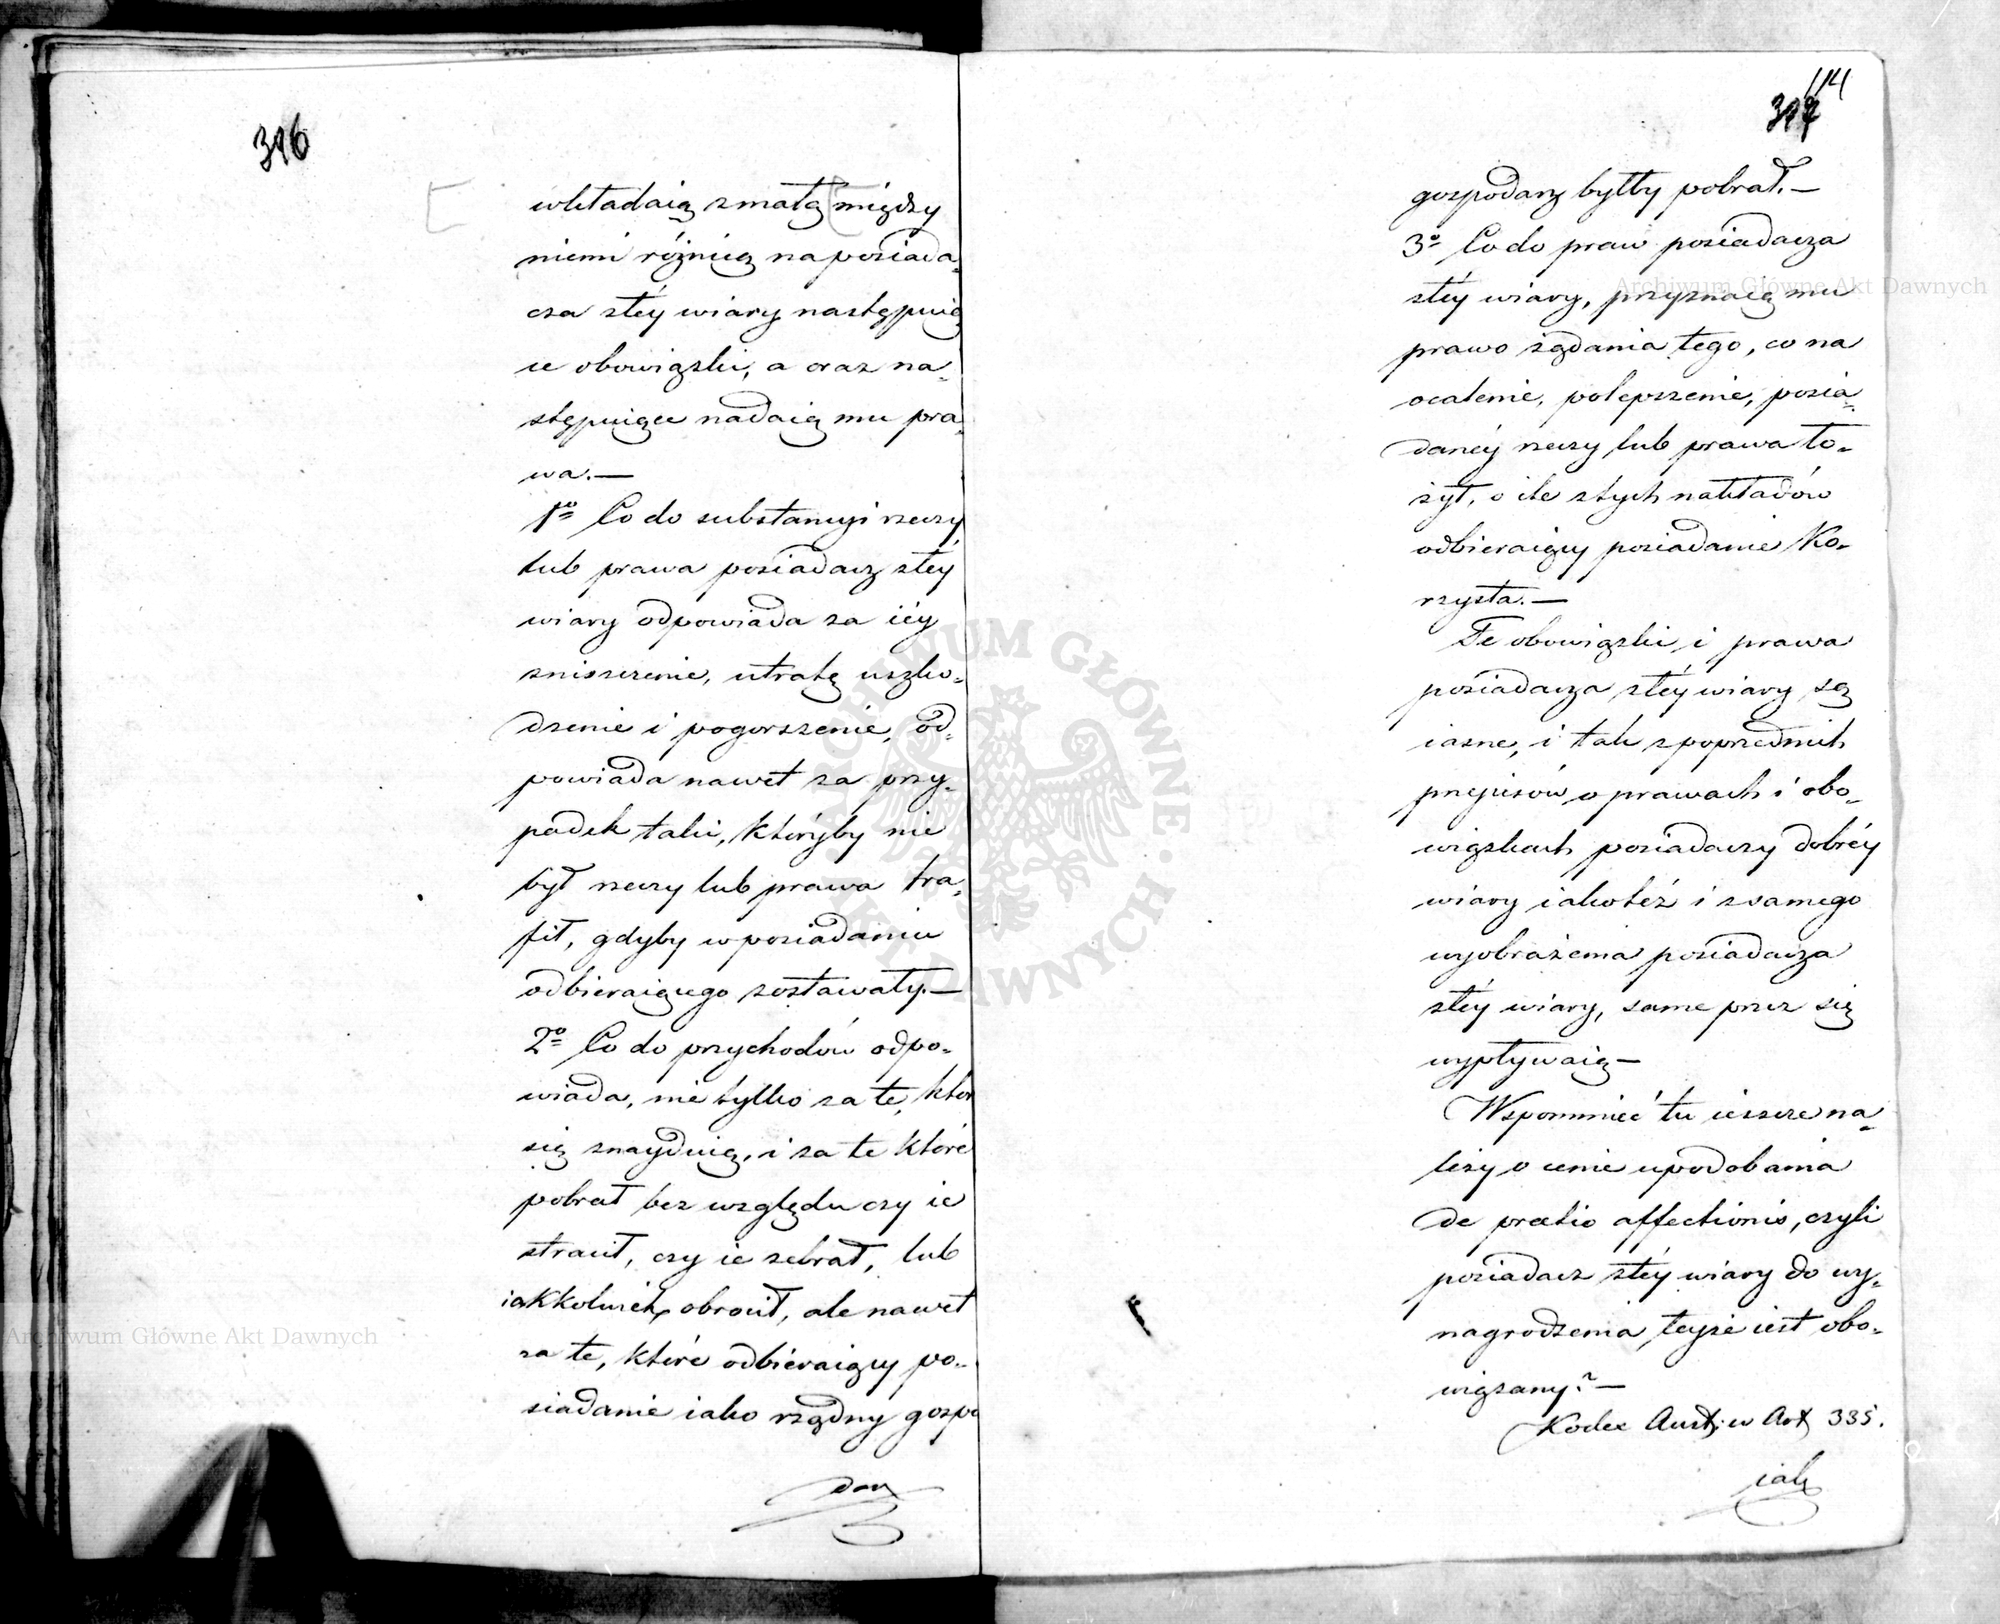 316
wkładaią z małą między
niemi różnicą na posiada„
cza złéy wiary następuią
ce obowiązki, a oraz na„
stępuiące nadaią mu pra„
wa.—
1º Co do substancyi rzeczy
lub prawa posiadacz złéy
wiary odpowiada za iéy
zniszczenie, utratę uszko„
dzenie i pogorszenie, od„
powiada nawet za przy„
padek taki, któryby nie
był rzeczy lub prawa tra„
fił, gdyby w posiadaniu
odbieraiącego zostawały.—
2º Co do przychodów odpo„
wiada, nie tylko za te, któr
się znayduią, i za te które
pobrał bez względu czy ie
stracił, czy ie zebrał, lub
iakkolwiek obrócił, ale nawet
za te, które odbieraiący po„
siadanie iako rządny gospo
darz
114
317
gospodarz byłby pobrał.—
3º Co do praw posiadacza
złéy wiary, przyznaią mu
prawo żądania tego, co na
ocalenie, polepszenie, posia„
danéy rzeczy lub prawa ło„
żył, o ile z tych nakładów
odbieraiący posiadanie ko„
rzysta.—
Te obowiązki, i prawa
posiadacza złéy wiary są
iasne, i tak z poprzednich
przepisów o prawach i obo„
wiązkach posiadaczy dobréy
wiary iakoteż i z samego
wyobrażenia posiadacza
złéy wiary, same przez się
wypływaią—
Wspomnieć tu ieszcze na„
leży o cenie upodobania
de pretio affectionis, czyli
posiadacz złéy wiary do wy„
nagrodzenia teyże iest obo„
wiązany?—
Kodex Austr: w Art 335.
iak
Archiwum Główne Akt Dawnych
Archiwum Główne Akt Dawnych
ARCHIWUM GŁÓWNE AKT DAWNYCH